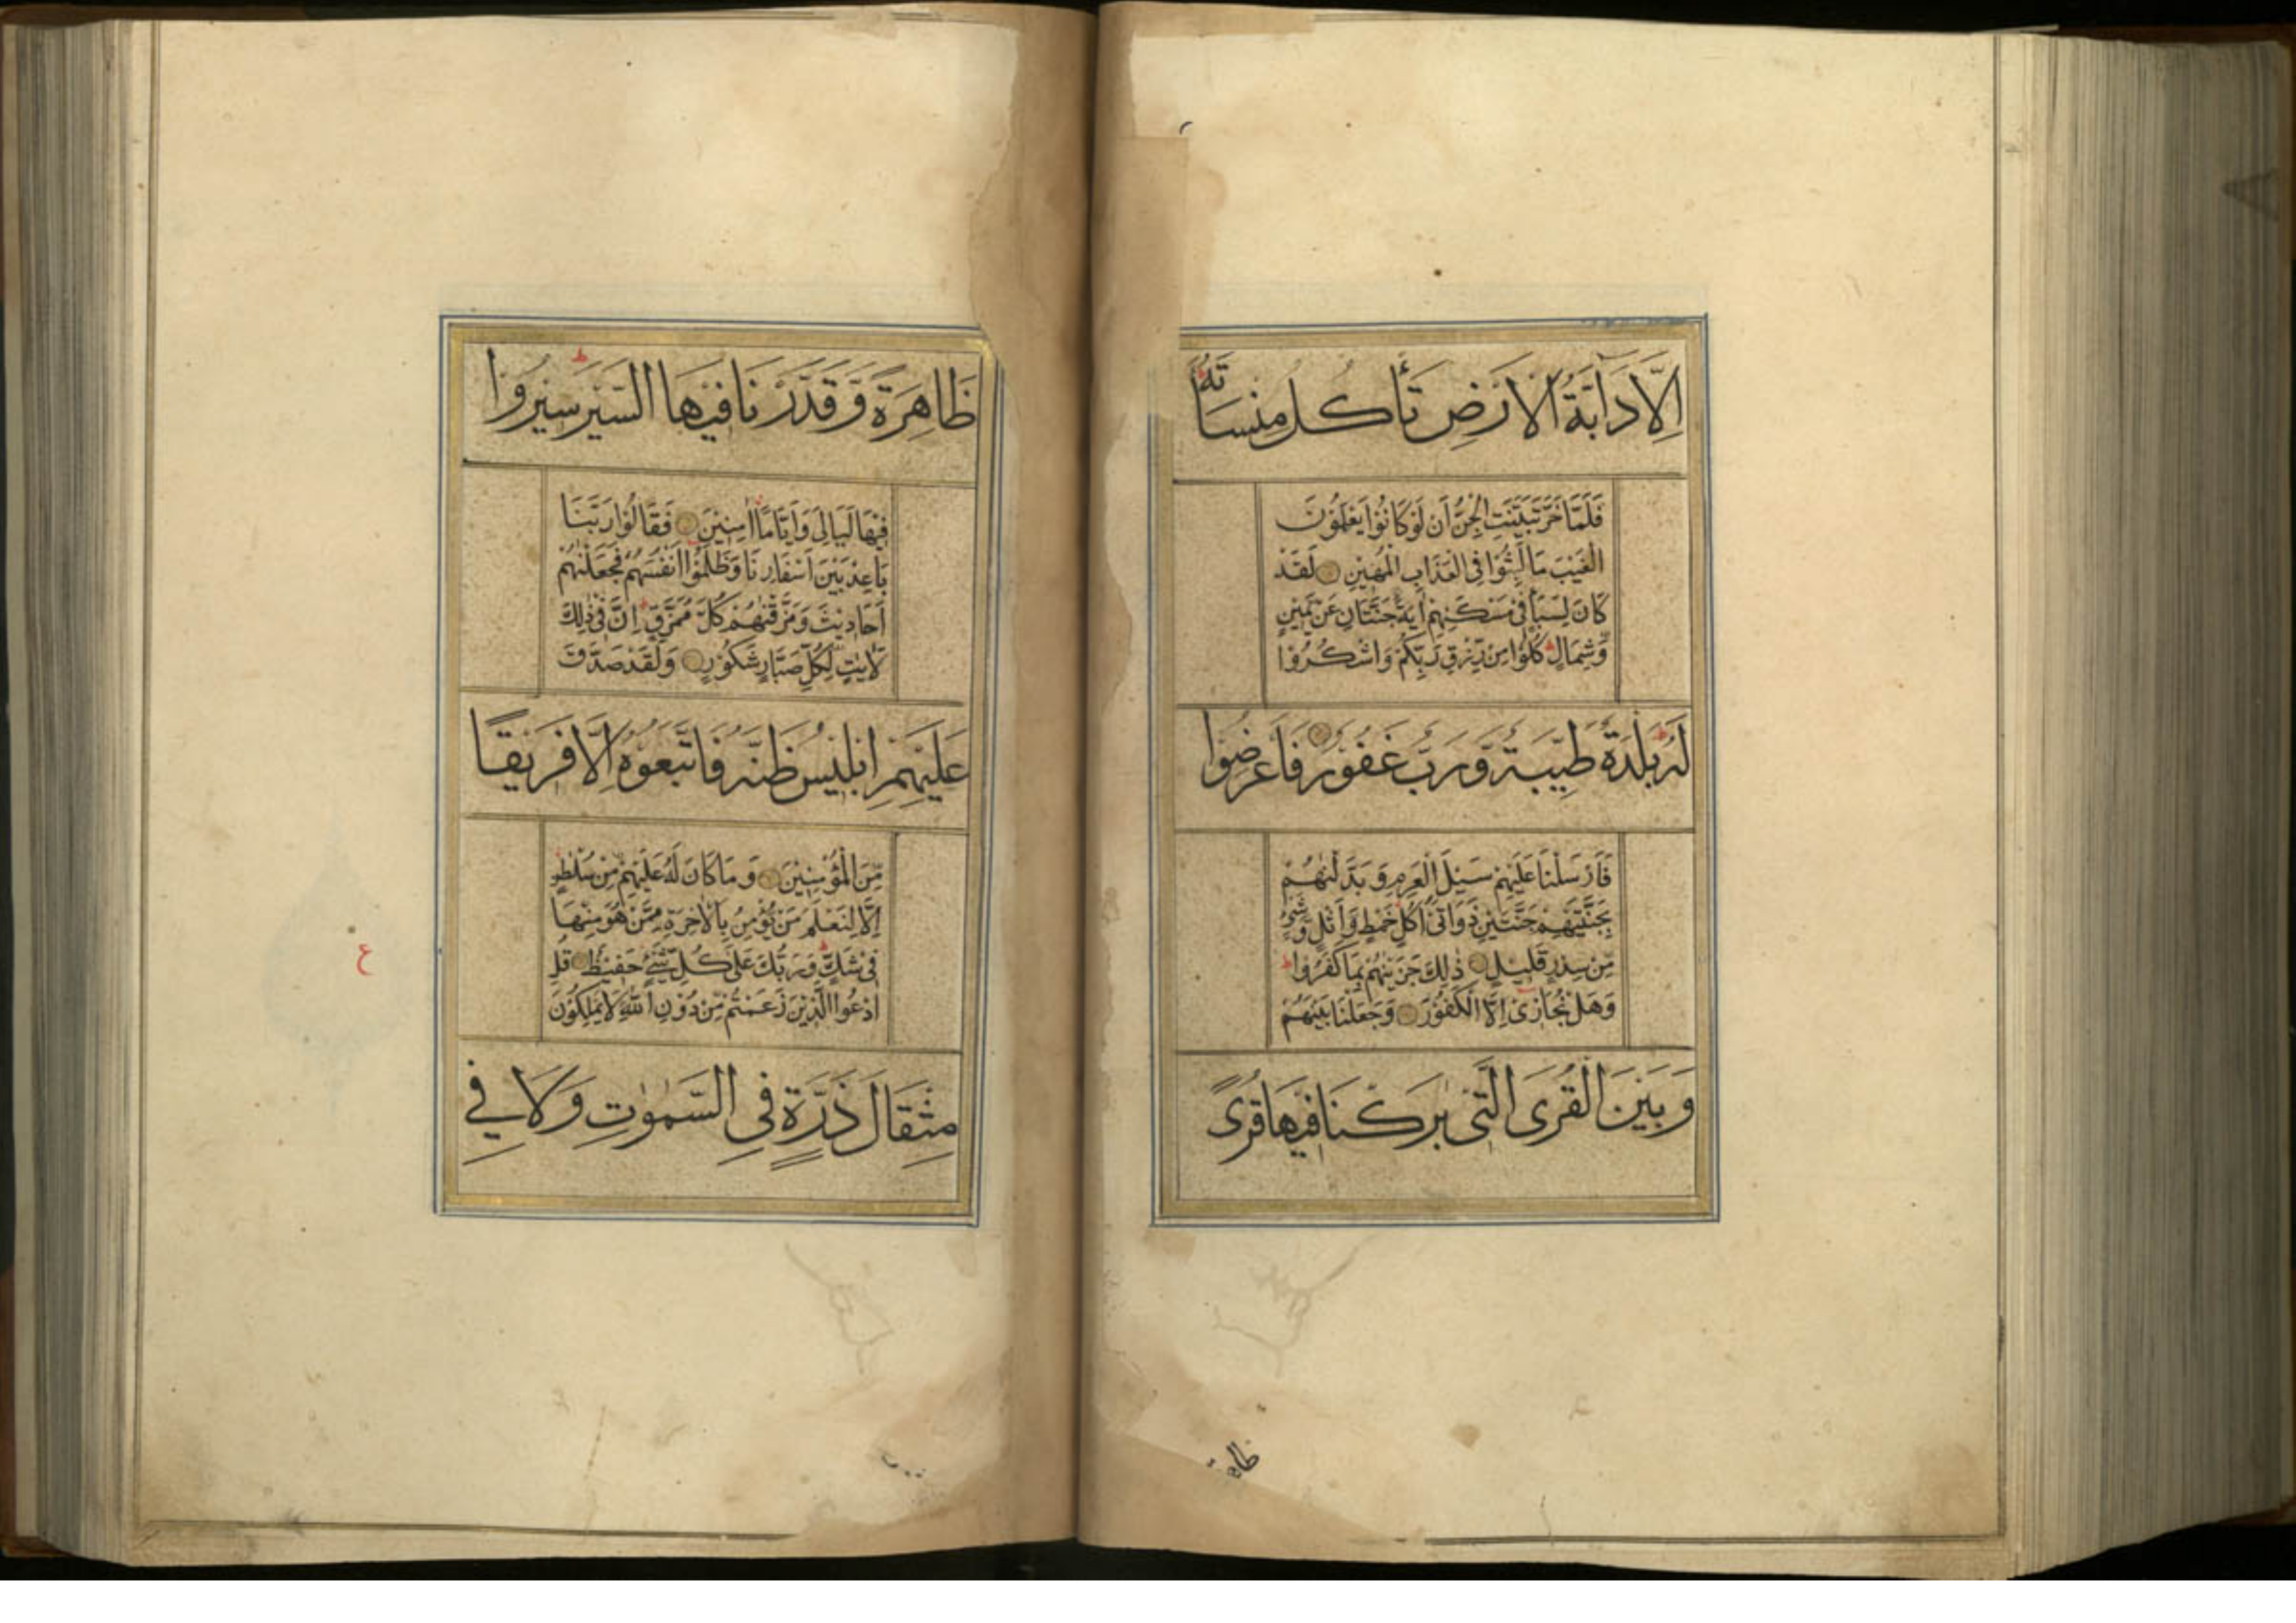 اِلَّا دَآبَّةُ الْاَرْضِ تَأْكُلُ مِنْسَاَتَهُ
فَلَمَّا خَرَّ تَبَيَّنَتِ الْجِنُّ اَنْ لَوْ كَانُوْا يَعْلَمُوْنَ
الْغَيْبَ مَا لَبِثُوْا فِى الْعَذَابِ الْمُهِيْنِ لَقَدْ
كَانَ لِسَبَاٍ فِىْ مَسْكَنِهِمْ اٰيَةٌ جَنَّتَانِ عَنْ يَّمِيْنٍ
وَّشِمَالٍ كُلُوْا مِنْ رِّزْقِ رَبِّكُمْ وَاشْكُرُوْا
لَهُ بَلْدَةٌ طَيِّبَةٌ وَّرَبٌّ غَفُوْرٌ فَاَعْرَضُوْا
فَاَرْسَلْنَا عَلَيْهِمْ سَيْلَ الْعَرِمِ وَبَدَّلْنٰهُمْ
بِجَنَّتَيْهِمْ جَنَّتَيْنِ ذَوَاتَىْ اُكُلٍ خَمْطٍ وَّاَثْلٍ وَّشَىْءٍ
مِّنْ سِدْرٍ قَلِيْلٍ ذٰلِكَ جَزَيْنٰهُمْ بِمَا كَفَرُوْا
وَهَلْ نُجَازِىْ اِلَّا الْكَفُوْرَ وَجَعَلْنَا بَيْنَهُمْ
وَبَيْنَ الْقُرَى الَّتِىْ بٰرَكْنَا فِيْهَا قُرًى
ظَاهِرَةً وَّقَدَّرْنَا فِيْهَا السَّيْرَ سِيْرُوْا
فِيْهَا لَيَالِىَ وَاَيَّامًا اٰمِنِيْنَ فَقَالُوْا رَبَّنَا
بَاعِدْ بَيْنَ اَسْفَارِنَا وَظَلَمُوْا اَنْفُسَهُمْ فَجَعَلْنٰهُمْ
اَحَادِيْثَ وَمَزَّقْنٰهُمْ كُلَّ مُمَزَّقٍ اِنَّ فِىْ ذٰلِكَ
لَاٰيٰتٍ لِّكُلِّ صَبَّارٍ شَكُوْرٍ وَلَقَدْ صَدَّقَ
عَلَيْهِمْ اِبْلِيْسُ ظَنَّهُ فَاتَّبَعُوْهُ اِلَّا فَرِيْقًا
مِّنَ الْمُؤْمِنِيْنَ وَمَا كَانَ لَهُ عَلَيْهِمْ مِّنْ سُلْطٰنٍ
اِلَّا لِنَعْلَمَ مَنْ يُّؤْمِنُ بِالْاٰخِرَةِ مِمَّنْ هُوَ مِنْهَا
فِىْ شَكٍّ وَرَبُّكَ عَلٰى كُلِّ شَىْءٍ حَفِيْظٌ قُلِ
ادْعُوا الَّذِيْنَ زَعَمْتُمْ مِّنْ دُوْنِ اللّٰهِ لَا يَمْلِكُوْنَ
مِثْقَالَ ذَرَّةٍ فِى السَّمٰوٰتِ وَلَا فِى
ع